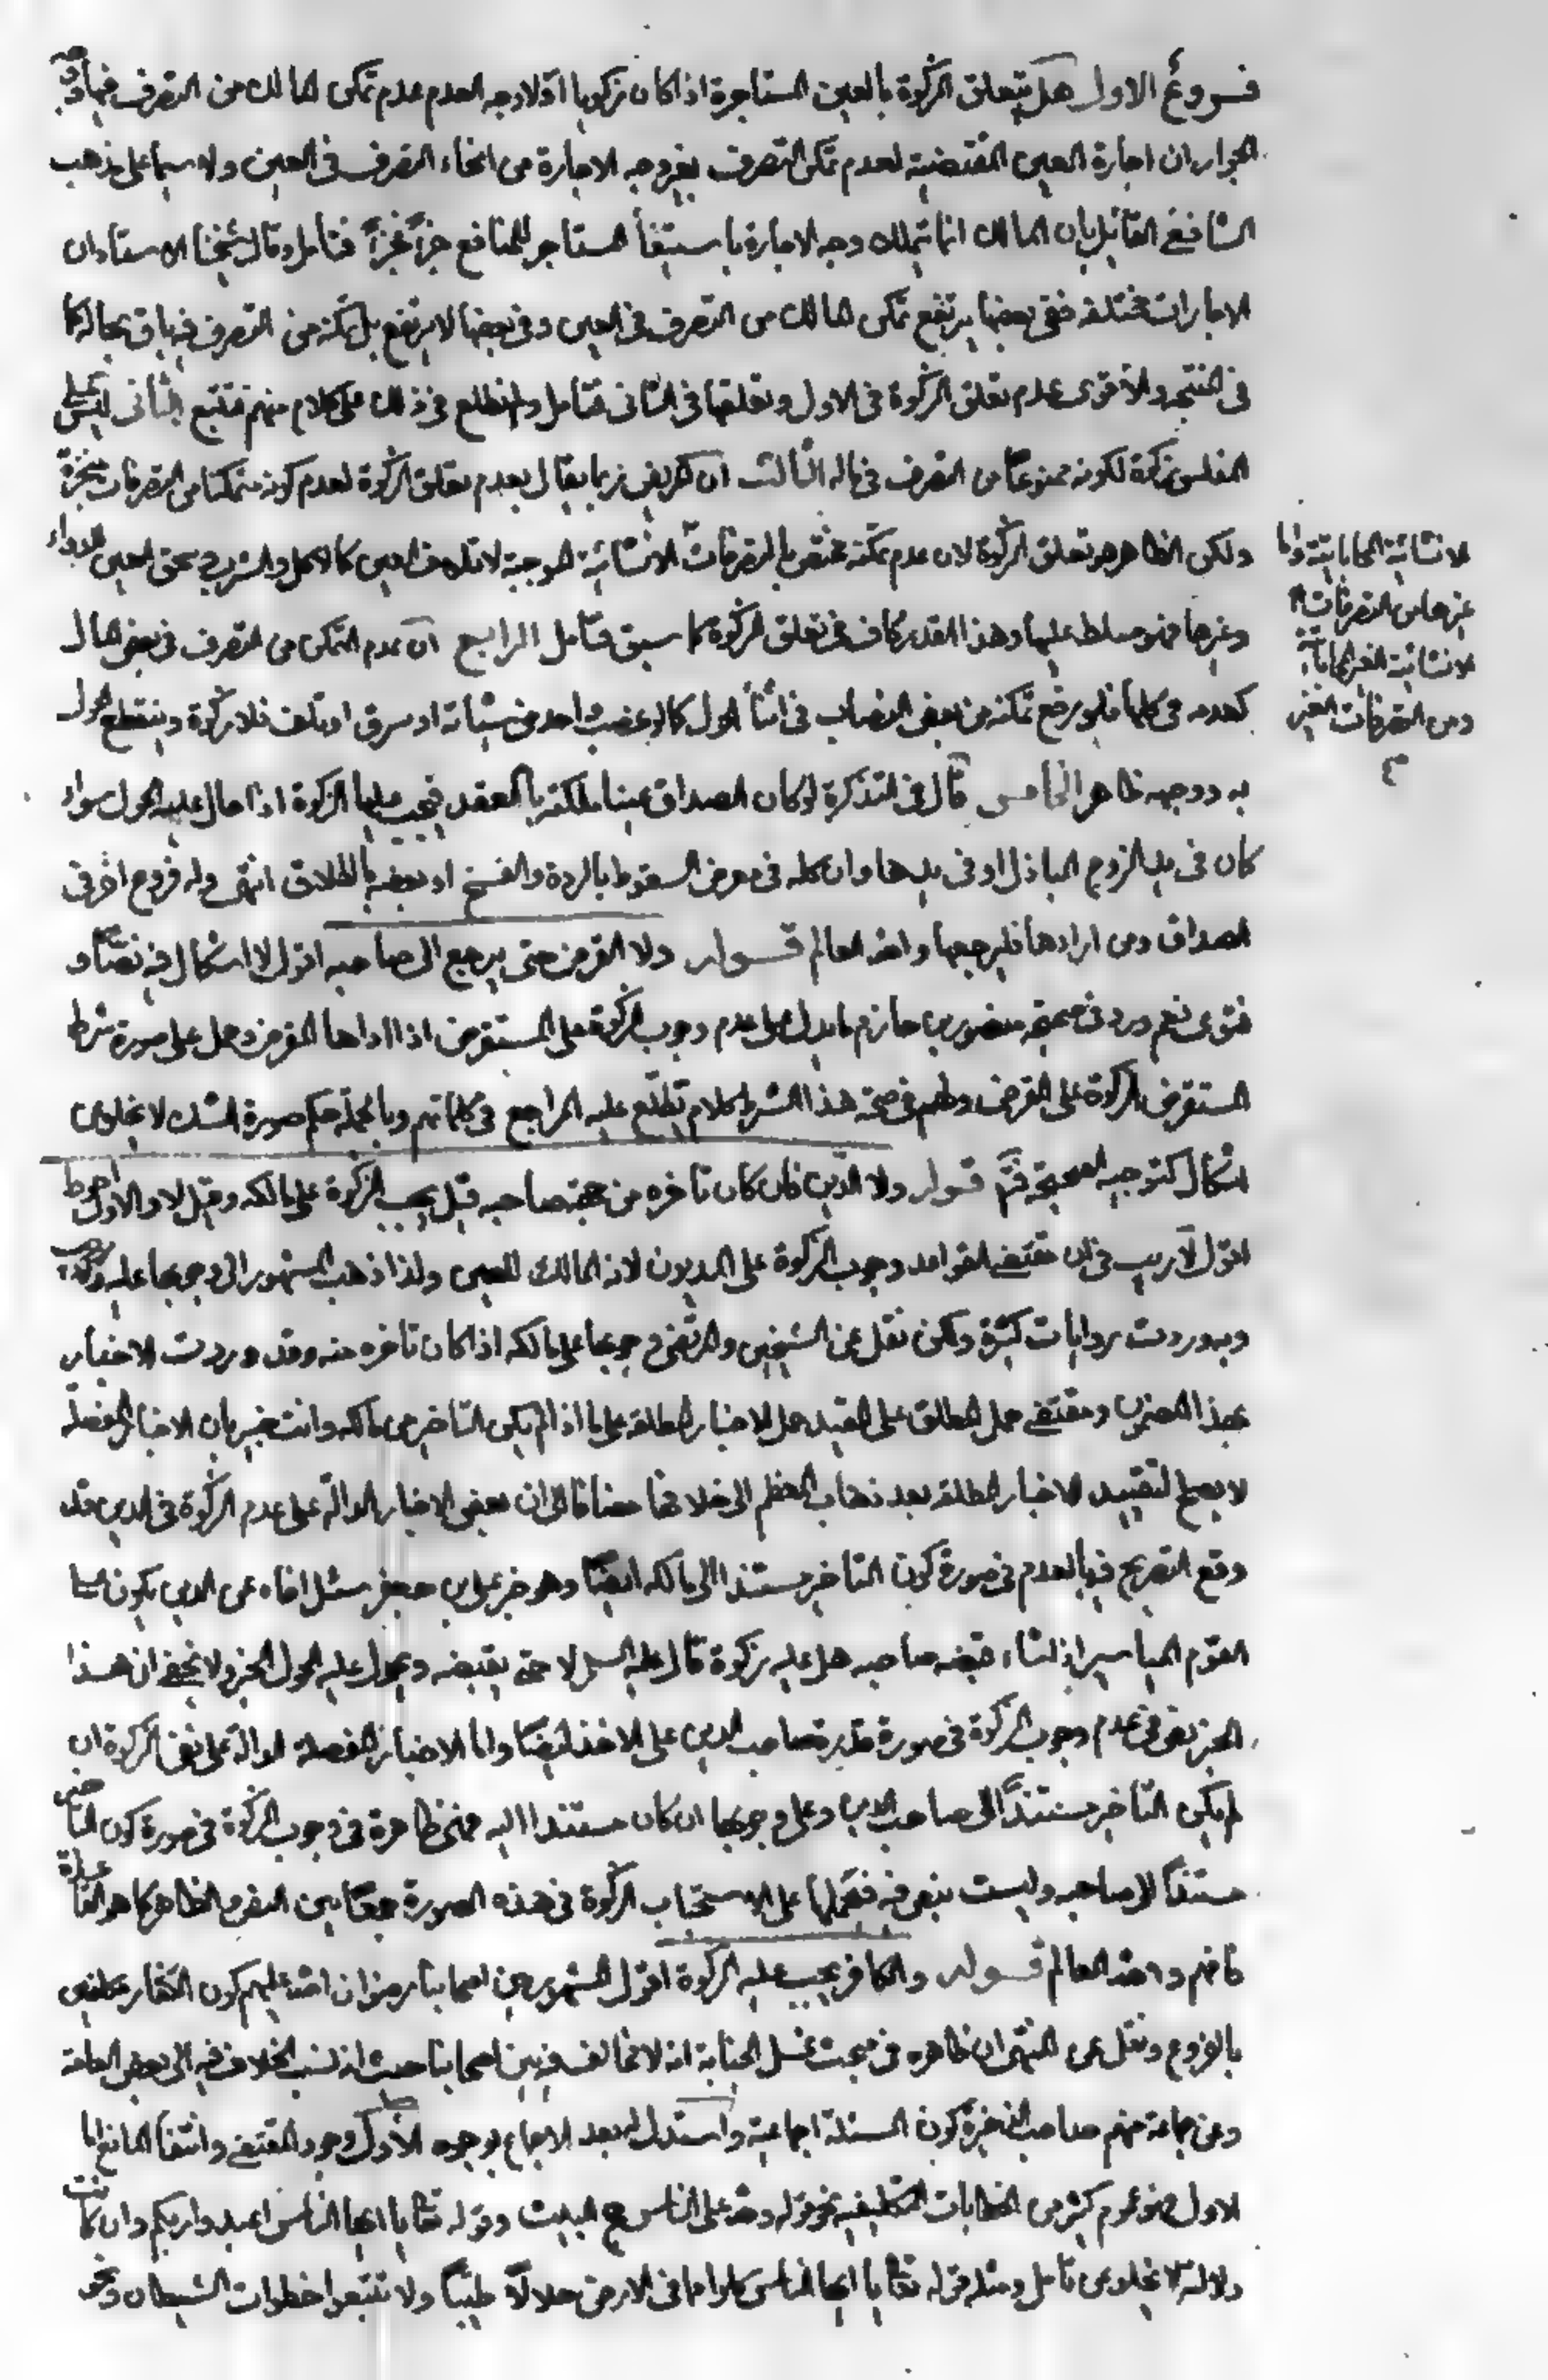 فروع الاول هل يتعلق الزكوة بالعين المستاجرة اذا كان زكويا او لا وجه العدم عدم تمكن المالك من التصرف فيها ووجه
الجواز ان اجارة العين المقتضية لعدم تمكن التصرف بغير وجه الاجارة من انحاء التصرف في العين ولا سيما على مذهب
الشافعي القائل بان المالك انما يتملك وجه الاجارة باستيفاء المستاجر للمنافع جزءً فجزءً فتامل وقال شيخنا الاستاد ان
الاجارات مختلفة ففي بعضها يرتفع تمكن المالك من التصرف في العين وفي بعضها لا يرتفع بل تمكنه من التصرف فيه باق بحاله كما
في والاقوى عدم تعلق الزكوة في الاول وتعلقها في الثاني فتامل ولم نطلع في ذلك على كلام منهم فتتبع الثاني ليس على
المفلس زكوة لكونه ممنوعاً من التصرف في ماله الثالث ان المريض ربما يقال بعدم تعلق الزكوة لعدم كونه متمكنا من التصرفات المنجزة
ولكن الظاهر هو تعلق الزكوة لان عدم تمكنه مختص بالتصرفات الانشائية الموجبة لاتلاف العين كالاكل والشرب
الانشائية المحاباتية واما
غيرها من التصرفات
الانشائية الغير المحاباتية
ومن التصرفات الغير
وغيرها فهو مسلط عليها وهذا القدر كاف في تعلق الزكوة كما سبق فتامل الرابع ان عدم التمكن من التصرف في بعض المال
كعدمه في كلها فلو رفع تمكنه من بعض النصاب في اثناء الحول كما لو غصب واحد من شياته او سرق او تلف فلا زكوة وينقطع الحول
به ووجهه ظاهر الخامس قال في التذكرة لو كان الصداق عينا ملكته بالعقد فيجب عليها الزكوة اذا حال عليه الحول سواء
كان في يد الزوج الباذل او في يدها وان كان كله في معرض السقوط بالردة والفسخ او بعضه بالطلاق انتهى وله فروع اخر في
الصداق ومن ارادها فليرجعها والله العالم قوله ولا القرض حتى يرجع الى صاحبه اقول لا اشكال فيه نصاً و
فتوى نعم ورد في صحيحة منصور بن حازم ما يدل على عدم وجوب الزكوة على المستقرض اذا اداها المقرض وحمل على صورة شرط
المستقرض الزكوة على المقرض ولهم في صحة هذا الشرط كلام يطلع عليه المراجع في كلماتهم وبالجملة حكم صورة الشك لا يخلو من
اشكال كتوجيه الصحيحة فتم قوله ولا الدين فان كان تاخره من جهة صاحبه قيل يجب الزكوة على مالكه وقيل لا والاول احوط
اقول لا ريب في ان مقتضى القواعد وجوب الزكوة على المديون لانه المالك للعين ولذا ذهب المشهور الى وجوبها عليه
وبه وردت روايات كثيرة ولكن نقل عن الشيخين والمرتضى وجوبها على مالكه اذا كان تاخره منه وقد وردت الاخبار
بهذا المضمون ومقتضى حمل المطلق على المقيد حمل الاخبار المطلقة على ما اذا لم يكن التاخير من مالكه وانت خبير بان الاخبار المفصلة
لا يصلح لتقييد الاخبار المطلقة بعد ذهاب المعظم الى خلافها مضافا الى ان بعض الاخبار الدالة على عدم الزكوة في الدين قد
وقع التصريح فيها بالعدم في صورة كون التاخير مستندا الى مالكه ايضا وهو خبر علي بن جعفر سئل اخاه عن الدين يكون على
القوم المياسير اذا شاء قبضه صاحبه هل عليه زكوة قال عليه السلم لا حتى يقبضه ويحول عليه الحول الخبر ولا يخفى ان هذا
الخبر نص في عدم وجوب الزكوة في صورة قدرة صاحب الدين على الاخذ ايضا واما الاخبار المفصلة الدالة على نفي الزكوة ان
لم يكن التاخير مستنداً الى صاحب الدين وعلى وجوبها ان كان مستندا اليه فهي ظاهرة في وجوب الزكوة في صورة كون التاخير
مستنداً الى صاحبه وليست بنص فيه فنحملها على الاستحباب الزكوة في هذه الصورة جمعاً بين النص والظاهر كما هو القاعدة
فافهم والله العالم قوله والكافر يجب عليه الزكوة اقول المشهور بين اصحابنا رضوان الله عليهم كون الكفار مكلفين
بالفروع ونقل عن المنتهى ان ظاهره في مبحث غسل الجنابة انه لا مخالف فيه بين اصحابنا حيث انه نسب الخلاف فيه الى بعض العامة
وعن جماعة منهم صاحب الذخيرة كون المسئلة اجماعية واستدل له بعد الاجماع بوجوه الاول وجود المقتضي وانتفاء المانع اما
الاول فهو عموم كثير من الخطابات التكليفية نحو قوله ولله على الناس حج البيت وقوله تعا يا ايها الناس اعبدوا ربكم وان كانت
دلالته لا يخلو من تامل ومثله قوله تعا يا ايها الناس كلوا مما في الارض حلالاً طيباً ولا تتبعوا خطوات الشيطان ونحو